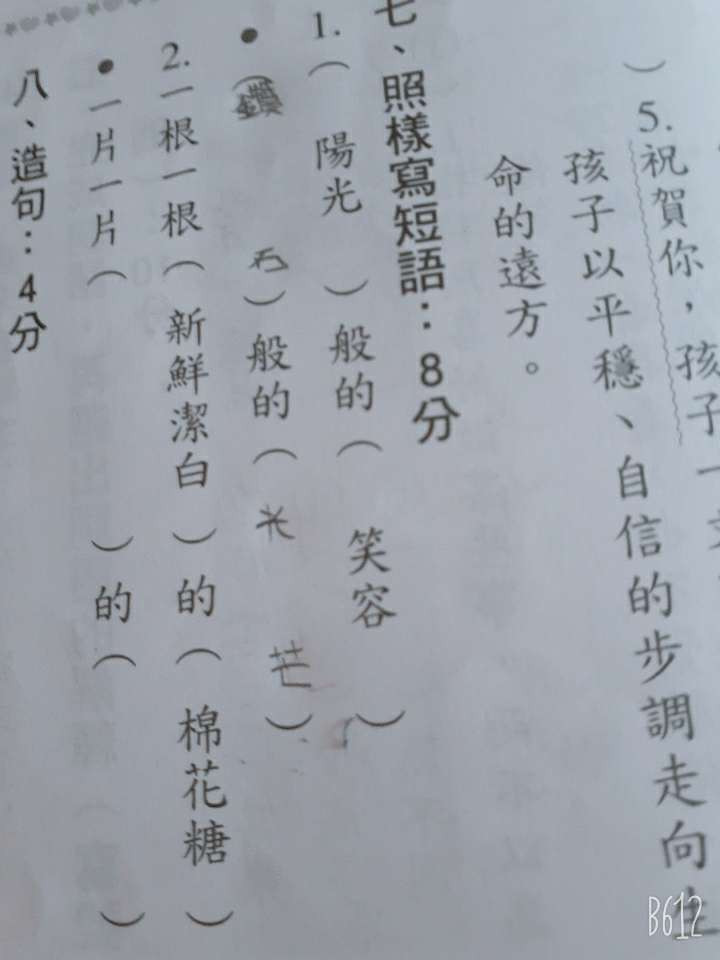 )5.祝賀你,孩子一
孩子以平穩、自信的步調走向生
命的遠方。
七、照樣寫短語:8分
1.( 陽光 )般的( 笑容 )
●(鑽石)般的(光芒)
2.一根一根(新鮮潔白)的(棉花糖)
●一片一片( )的( )
八、造句:4分
B612